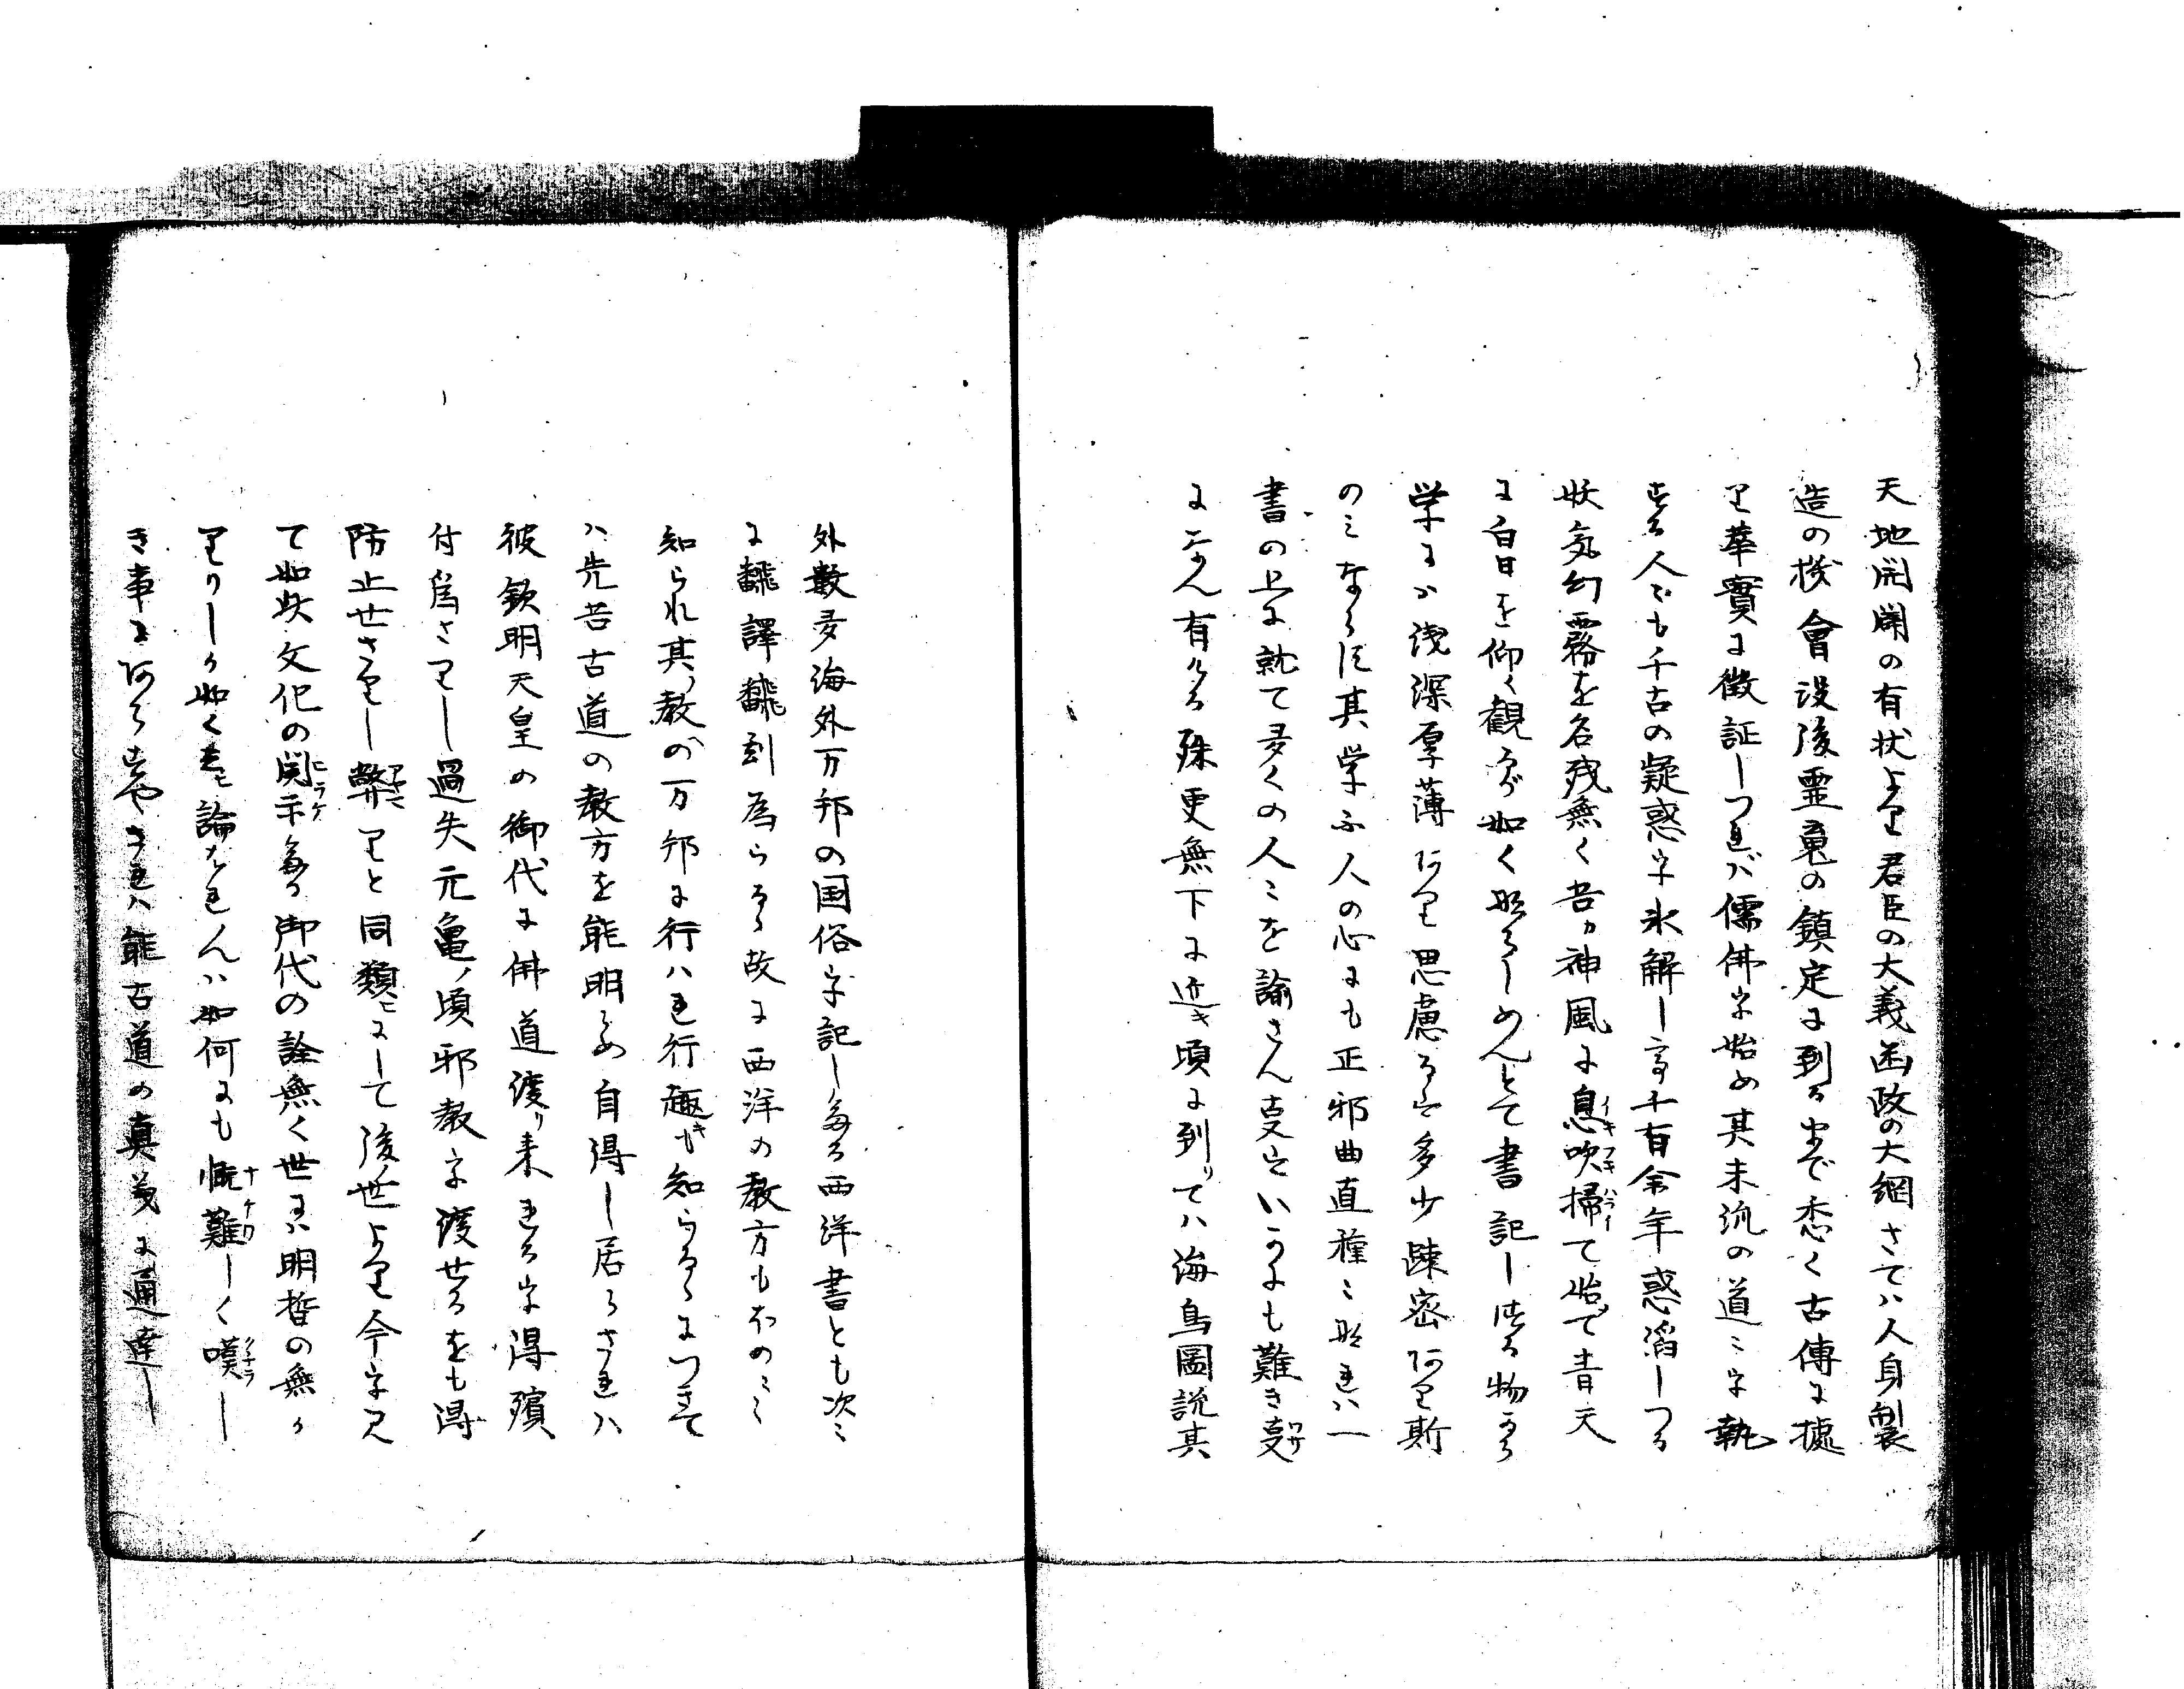 天地開闢の有状より君臣の大義函政の大綱さてハ人身製
造の機會設後霊魂の鎮定に到るまで悉く古傳に據
り華實に徴証しつれバ儒佛を始め其末流の道ミを執
する人ゞも千古の疑惑を氷解し二千有余年惑溺しつる
妖気幻霧を名残無く吾カ神風に息吹掃て始て青天
に白日を仰く観るが如く為らしめんとて書記しける物から
学にハ浅深厚薄あり思慮るに多少踈密あり斯
のミならす其学ふ人の心にも正邪曲直種ミ有れハ一
書の上に就て多くの人ミを諭さん支はいかにも難き支
になん有ける殊更無下に近キ頃に到りてハ海島圖説其
外數多海外万邦の国俗を記しゝる西洋書とも次ミ
に飜譯飜刻為らるゝ故に西洋の教方もほのミ
知られ其ノ教の万邦に行ハれ行趣キも知らるゝにつきて
ハ先吾古道の教方を能明らめ自得し居らされハ
彼欽明天皇の御代に佛道渡り来れるを得殯
付為さりし過失元亀ノ頃邪教を渡せるをも得
防止せさりし弊りと同類ニにして後ノ世より今を見
て如此文化の開示ゝる御代の詮無く世にハ明哲の無か
りけりしか如く論られんハ如何にも慨難しく嘆し
き事にあらすやされハ能古道の真義に通達し